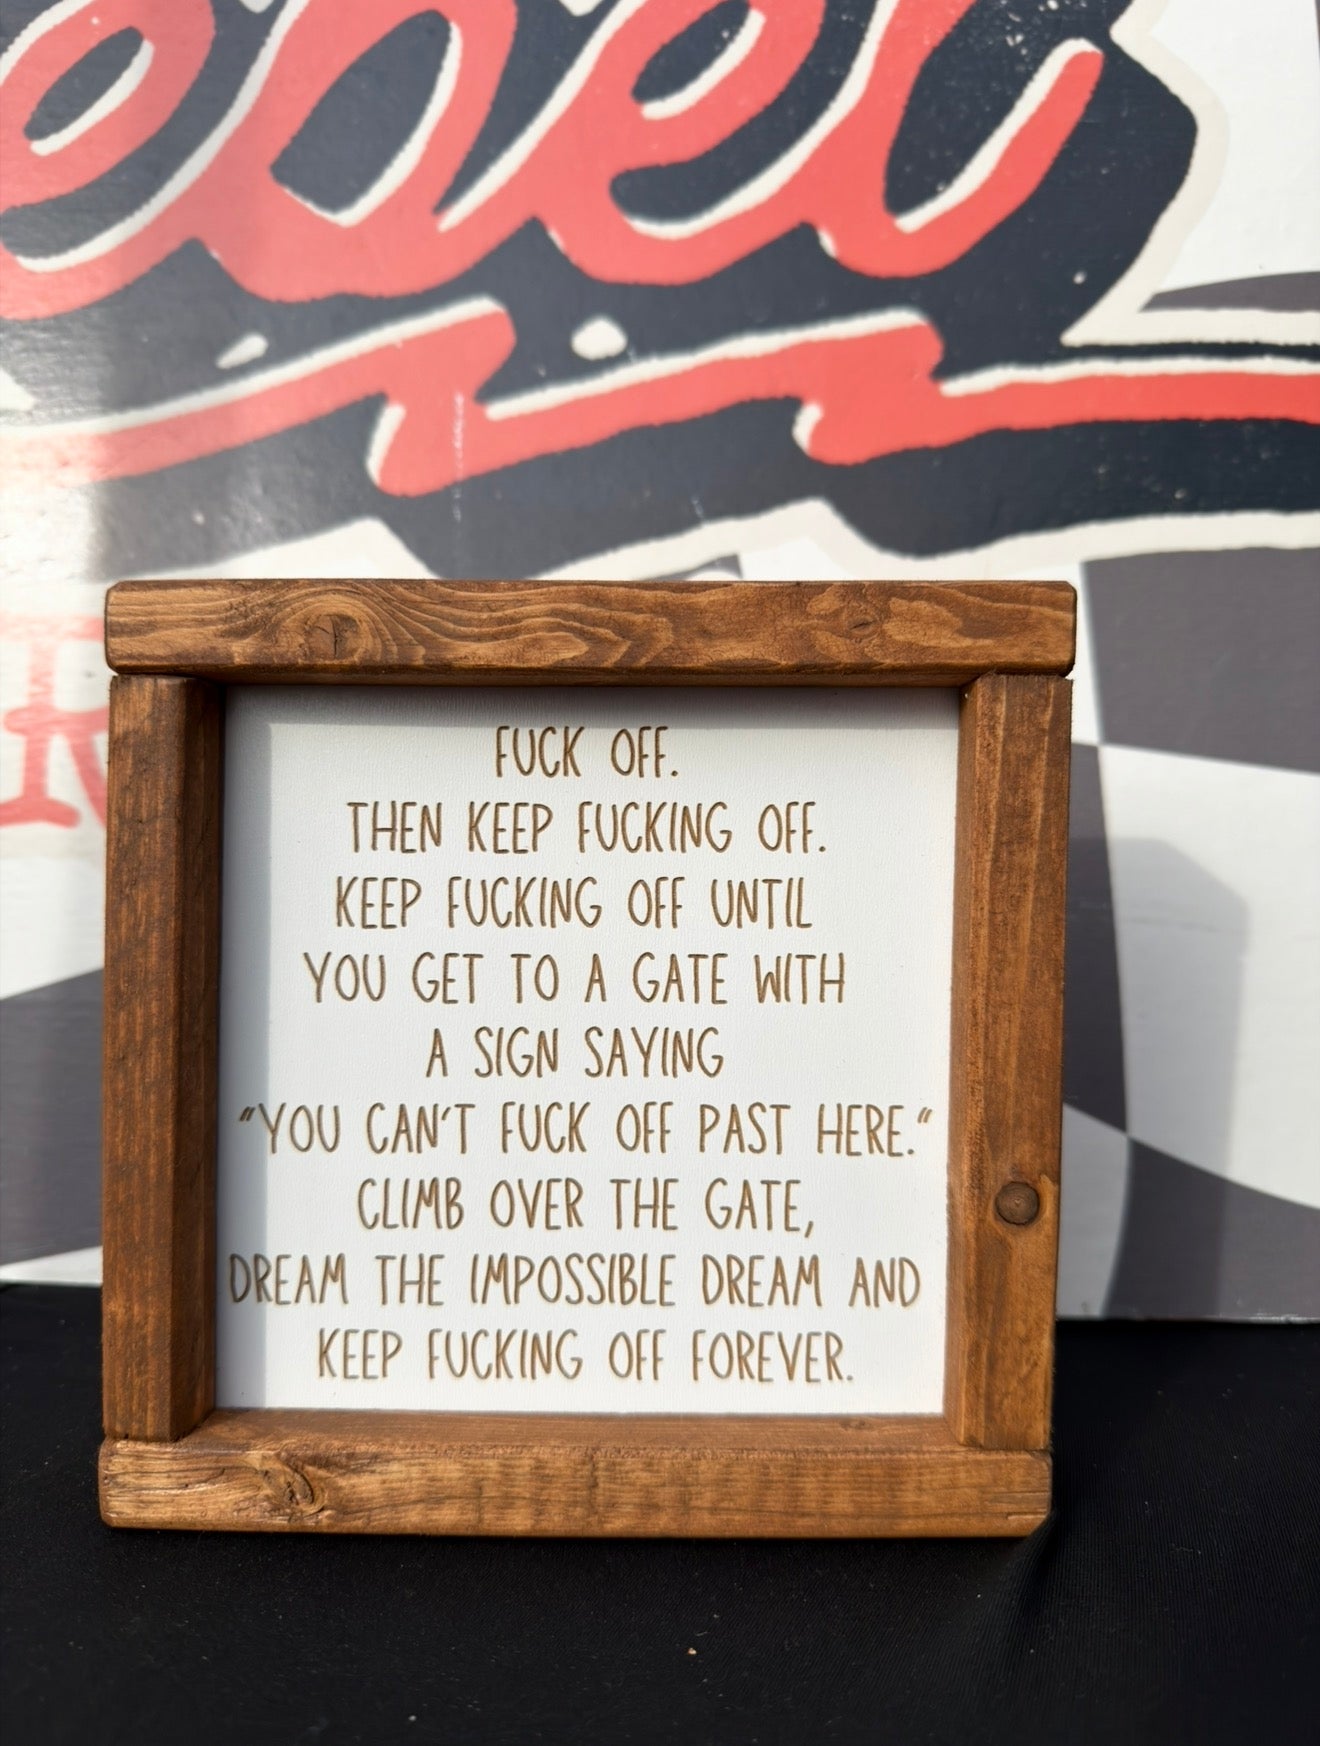 FUCK OFF.
THEN KEEP FUCKING OFF.
KEEP FUCKING OFF UNTIL
YOU GET TO A GATE WITH
A SIGN SAYING
"YOU CAN'T FUCK OFF PAST HERE."
CLIMB OVER THE GATE,
DREAM THE IMPOSSIBLE DREAM AND
KEEP FUCKING OFF FOREVER.